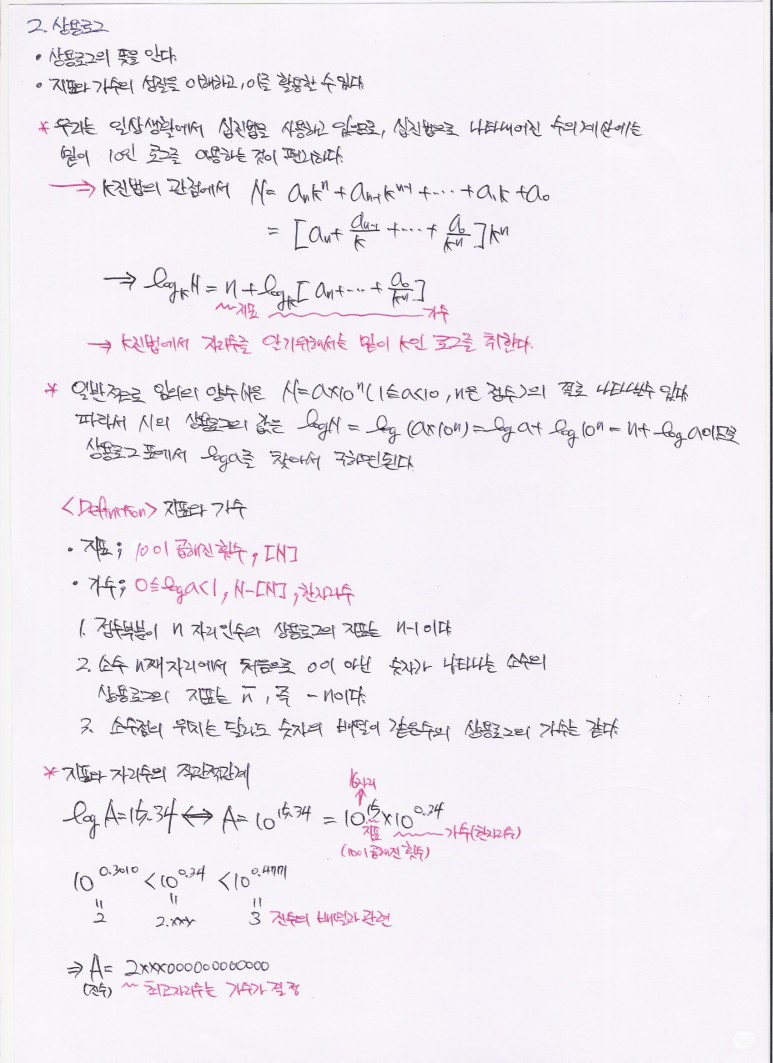 2. 상용로그
• 상용로그의 뜻을 안다.
• 지표와 가수의 성질을 이해하고, 이를 활용할 수 있다.
* 우리는 일상생활에서 십진법을 사용하고 있으므로, 십진법으로 나타내어진 수의 계산에는
밑이 10인 로그를 이용하는 것이 편리하다.
→ K진법의 관점에서 N = aₙkⁿ + aₙ₋₁kⁿ⁻¹ + ⋯ + a₁k + a₀
= [aₙ + aₙ₋₁/k + ⋯ + a₀/kⁿ]kⁿ
→ logₖN = n + logₖ[aₙ + ⋯ + a₀/kⁿ]
지표 가수
→ K진법에서 자리수를 알기위해서는 밑이 K인 로그를 취한다.
* 일반적으로 임의의 양수 N은 N = a×10ⁿ (1≦a<10, n은 정수)의 꼴로 나타낼수 있다.
따라서 N의 상용로그의 값은 logN = log (a×10ⁿ) = log a + log 10ⁿ = n + log a이므로
상용로그표에서 log a를 찾아서 구하면된다.
<Definition> 지표와 가수
• 지표 ; 10이 곱해진 횟수, [N]
• 가수 ; 0≦log a<1, N-[N], 한자리수
1. 정수부분이 n 자리인수의 상용로그의 지표는 n-1이다.
2. 소수 n째자리에서 처음으로 0이 아닌 숫자가 나타나는 소수의
상용로그의 지표는 n̄, 즉 -n이다.
3. 소수점의 위치는 달라도 숫자의 배열이 같은수의 상용로그의 가수는 같다.
* 지표와 자리수의 직관적관계
16자리
log A = 15.34 ⟺ A = 10^15.34 = 10^15 × 10^0.34
지표 가수(한자리수)
(10이 곱해진 횟수)
10^0.3010 < 10^0.34 < 10^0.4771
= = =
2 2.xxx 3 진수의 배열과 관련
⇒ A = 2xxx000000000000
(진수) 최고자리수는 가수가 결정